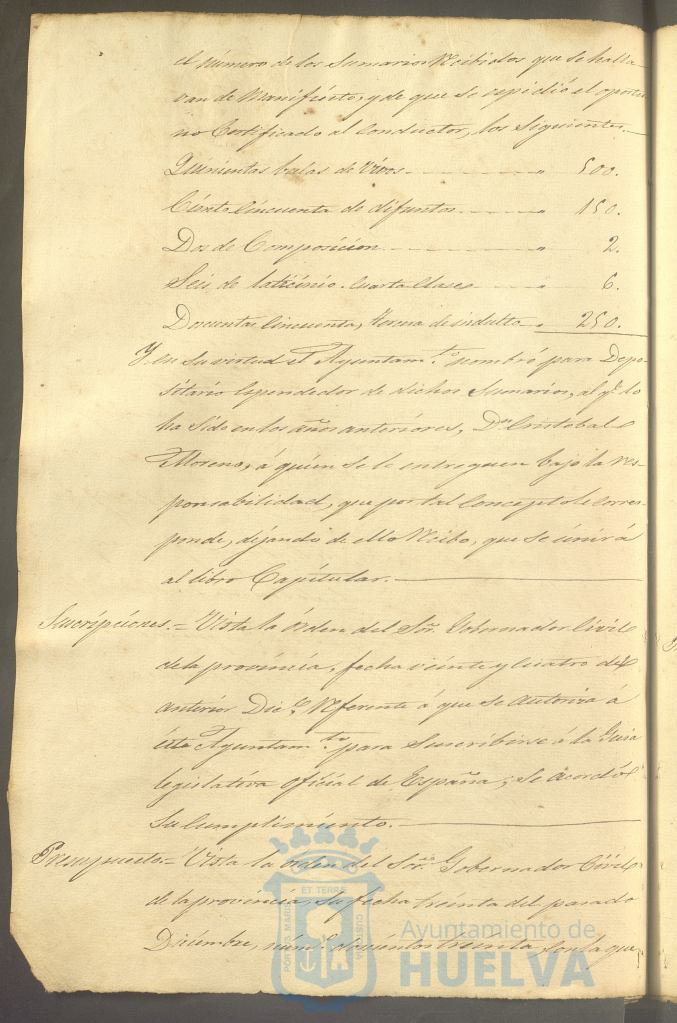 el número de los Sumarios recibidos que se halla-
ran de Manifiesto, y de que se espidió el oportu-
no Certificado al Conductor, los Siguientes.
Quinientas bulas de Vivos " 500.
Ciento Cincuenta de difuntos " 150.
Dos de Composicion " 2.
Seis de laticinio Cuarta Clase " 6.
Doscientas Cincuenta, de indulto " 250.
Y en su vertud el Ayuntam.to nombró para Depo-
sitario Espendedor de dichos Sumarios, al q.e lo
ha Sido en los años anteriores, D.n Cristobal
Moreno, á quien se le entreguen bajo la res-
ponsabilidad, que por tal Concepto le Corres-
ponde, dejando de ello recibo, que se unirá
al libro Capitular.
Suscripciones.= Vista la órden del Sor. Gobernador Civil
de la provincia, fecha veinte y Cuatro del
anterior Dic.e referente á que se autoriza á
éste Ayuntam.to para Suscribirse á la Guia
legislativa oficial de España; Se acordó
Su Cumplimiento.
Presupuesto.= Vista la órden del Sor. Gobernador Civil
de la provincia, su fecha treinta del pasado
Diciembre, núm.o doscientos treinta, con la que
PORTUS MARIS ET TERRE CUSTODIA
Ayuntamiento de
HUELVA